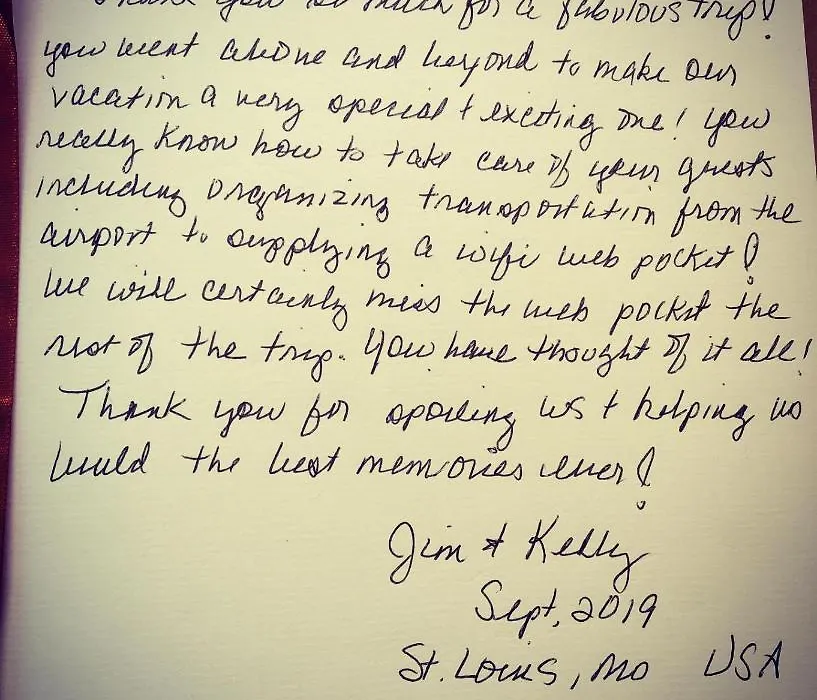 Thank you so much for a fabulous trip!
you went above and beyond to make our
vacation a very special + exciting one! you
really know how to take care of your guests
including organizing transportation from the
airport to supplying a wifi web pocket!
We will certainly miss the web pocket the
rest of the trip. You have thought of it all!
Thank you for spoiling us + helping us
build the best memories ever!
Jim & Kelly
Sept, 2019
St. Louis, MO USA